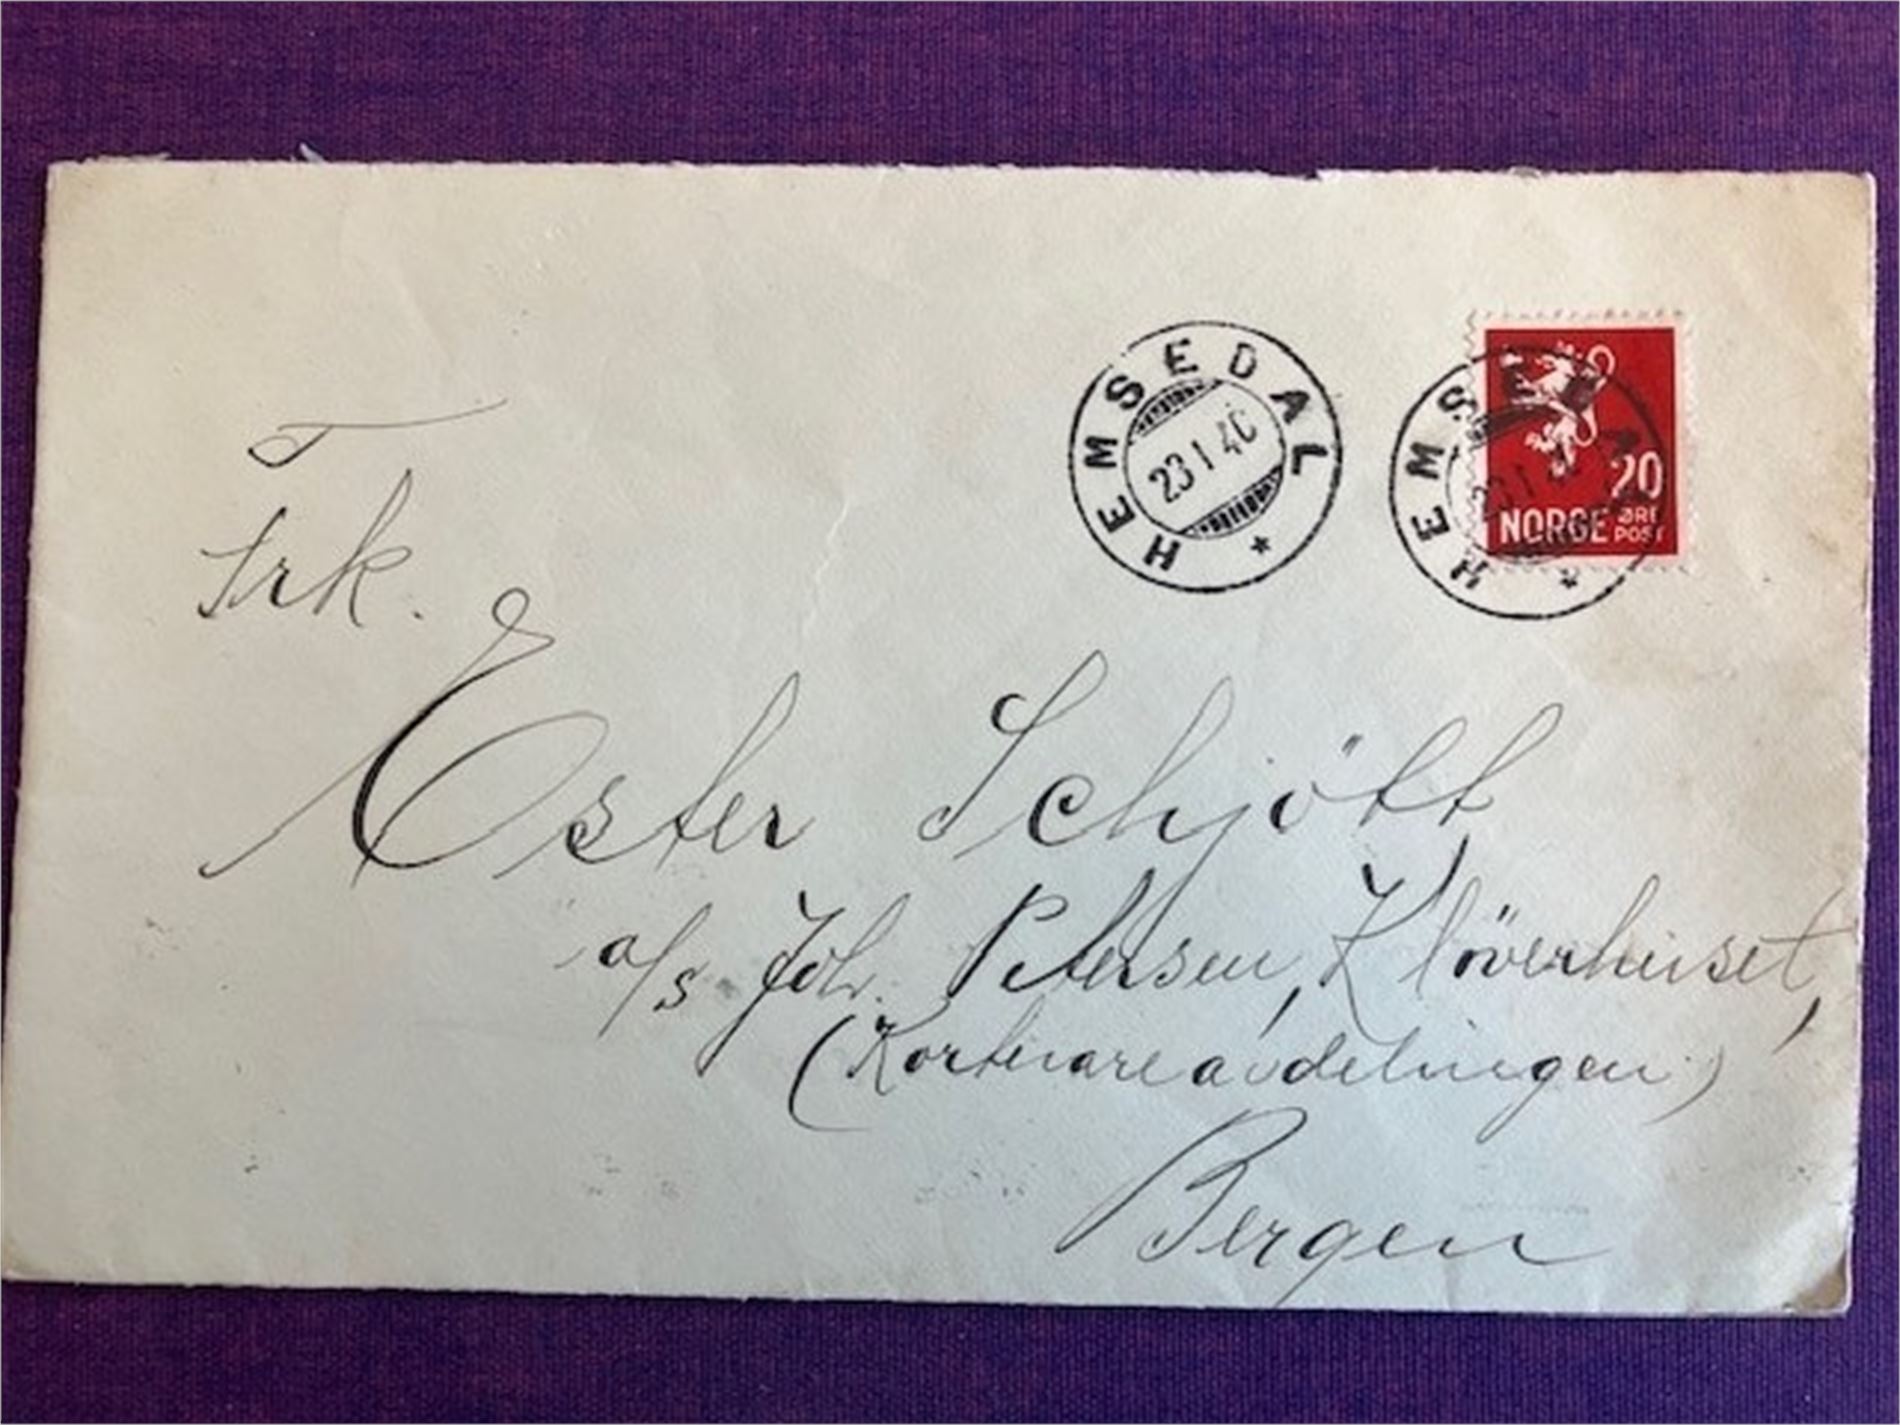 HEMSEDAL
23 I 40
HEMSED
23 I 4
20
NORGE ØRE
POST
Frk.
Ester Schjött
a/s Joh. Petersen, Klöverhuset,
(Kortevareavdelingen)
Bergen